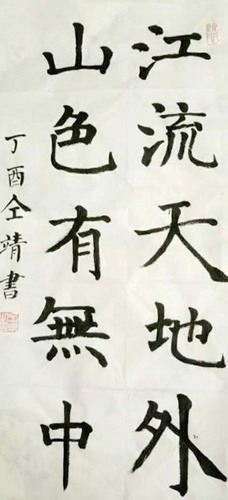 江流天地外
山色有無中
丁酉仝靖書